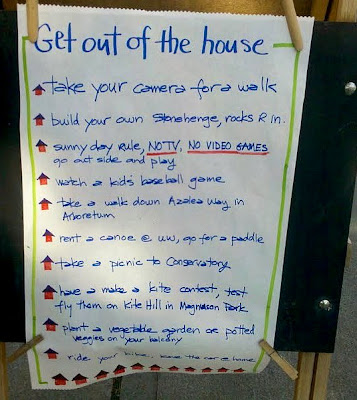 Get out of the house
take your camera for a walk
build your own Stonehenge, rocks R in.
sunny day rule, NO TV, NO VIDEO GAMES
go out side and play
watch a kid's baseball game
take a walk down Azalea Way in
Arboretum
rent a canoe @ UW, go for a paddle
take a picnic to Conservatory
have a make a kite contest, test
fly them on Kite Hill in Magnuson Park
plant a vegetable garden or potted
veggies on your balcony
ride your bike, leave the car @ home